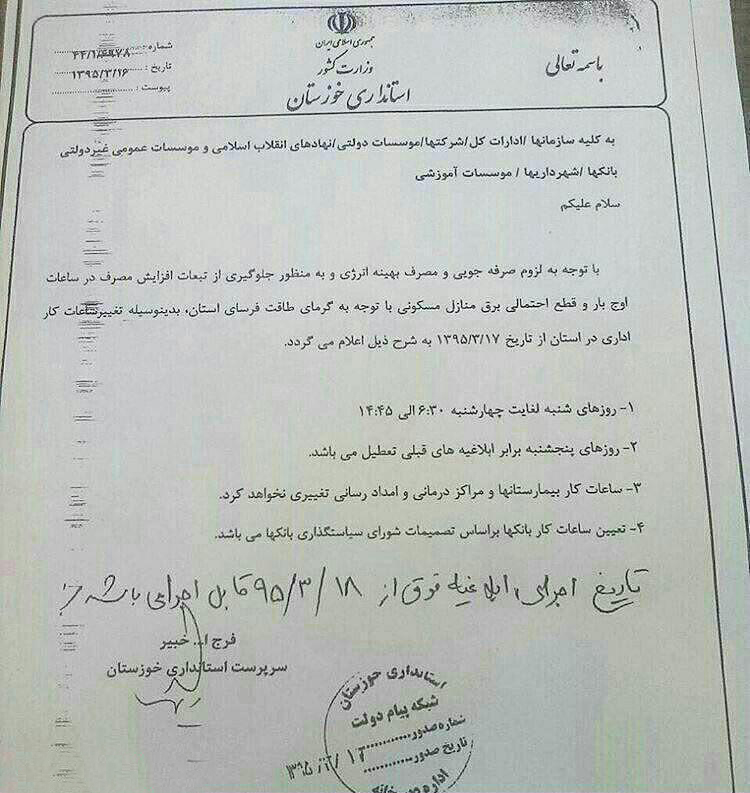 باسمه تعالی
جمهوری اسلامی ایران
وزارت کشور
استانداری خوزستان
شماره:
تاریخ: ۱۳۹۵/۳/۱۶
پیوست:
به کلیه سازمانها /ادارات کل/شرکتها/موسسات دولتی/نهادهای انقلاب اسلامی و موسسات عمومی غیردولتی
بانکها /شهرداریها / موسسات آموزشی
سلام علیکم
با توجه به لزوم صرفه جویی و مصرف بهینه انرژی و به منظور جلوگیری از تبعات افزایش مصرف در ساعات
اوج بار و قطع احتمالی برق منازل مسکونی با توجه به گرمای طاقت فرسای استان، بدینوسیله تغییرساعات کار
اداری در استان از تاریخ ۱۳۹۵/۳/۱۷ به شرح ذیل اعلام می گردد.
۱- روزهای شنبه لغایت چهارشنبه ۶:۳۰ الی ۱۴:۴۵
۲- روزهای پنجشنبه برابر ابلاغیه های قبلی تعطیل می باشد.
۳- ساعات کار بیمارستانها و مراکز درمانی و امداد رسانی تغییری نخواهد کرد.
۴- تعیین ساعات کار بانکها براساس تصمیمات شورای سیاستگذاری بانکها می باشد.
تاریخ اجرای ابلاغیه فوق از ۹۵/۳/۱۸ قابل اجرا می باشد
فرج ا... خبیر
سرپرست استانداری خوزستان
استانداری خوزستان
شبکه پیام دولت
شماره صدور
تاریخ صدور